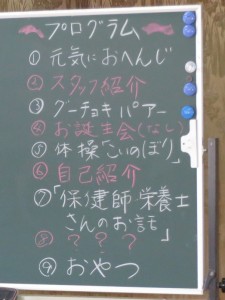 プログラム
① 元気におへんじ
② スタッフ紹介
③ グーチョキパアー
④ お誕生会(なし)
⑤ 体操「こいのぼり」
⑥ 自己紹介
⑦「保健師 栄養士
さんのお話」
⑧ ? ? ?
⑨ おやつ